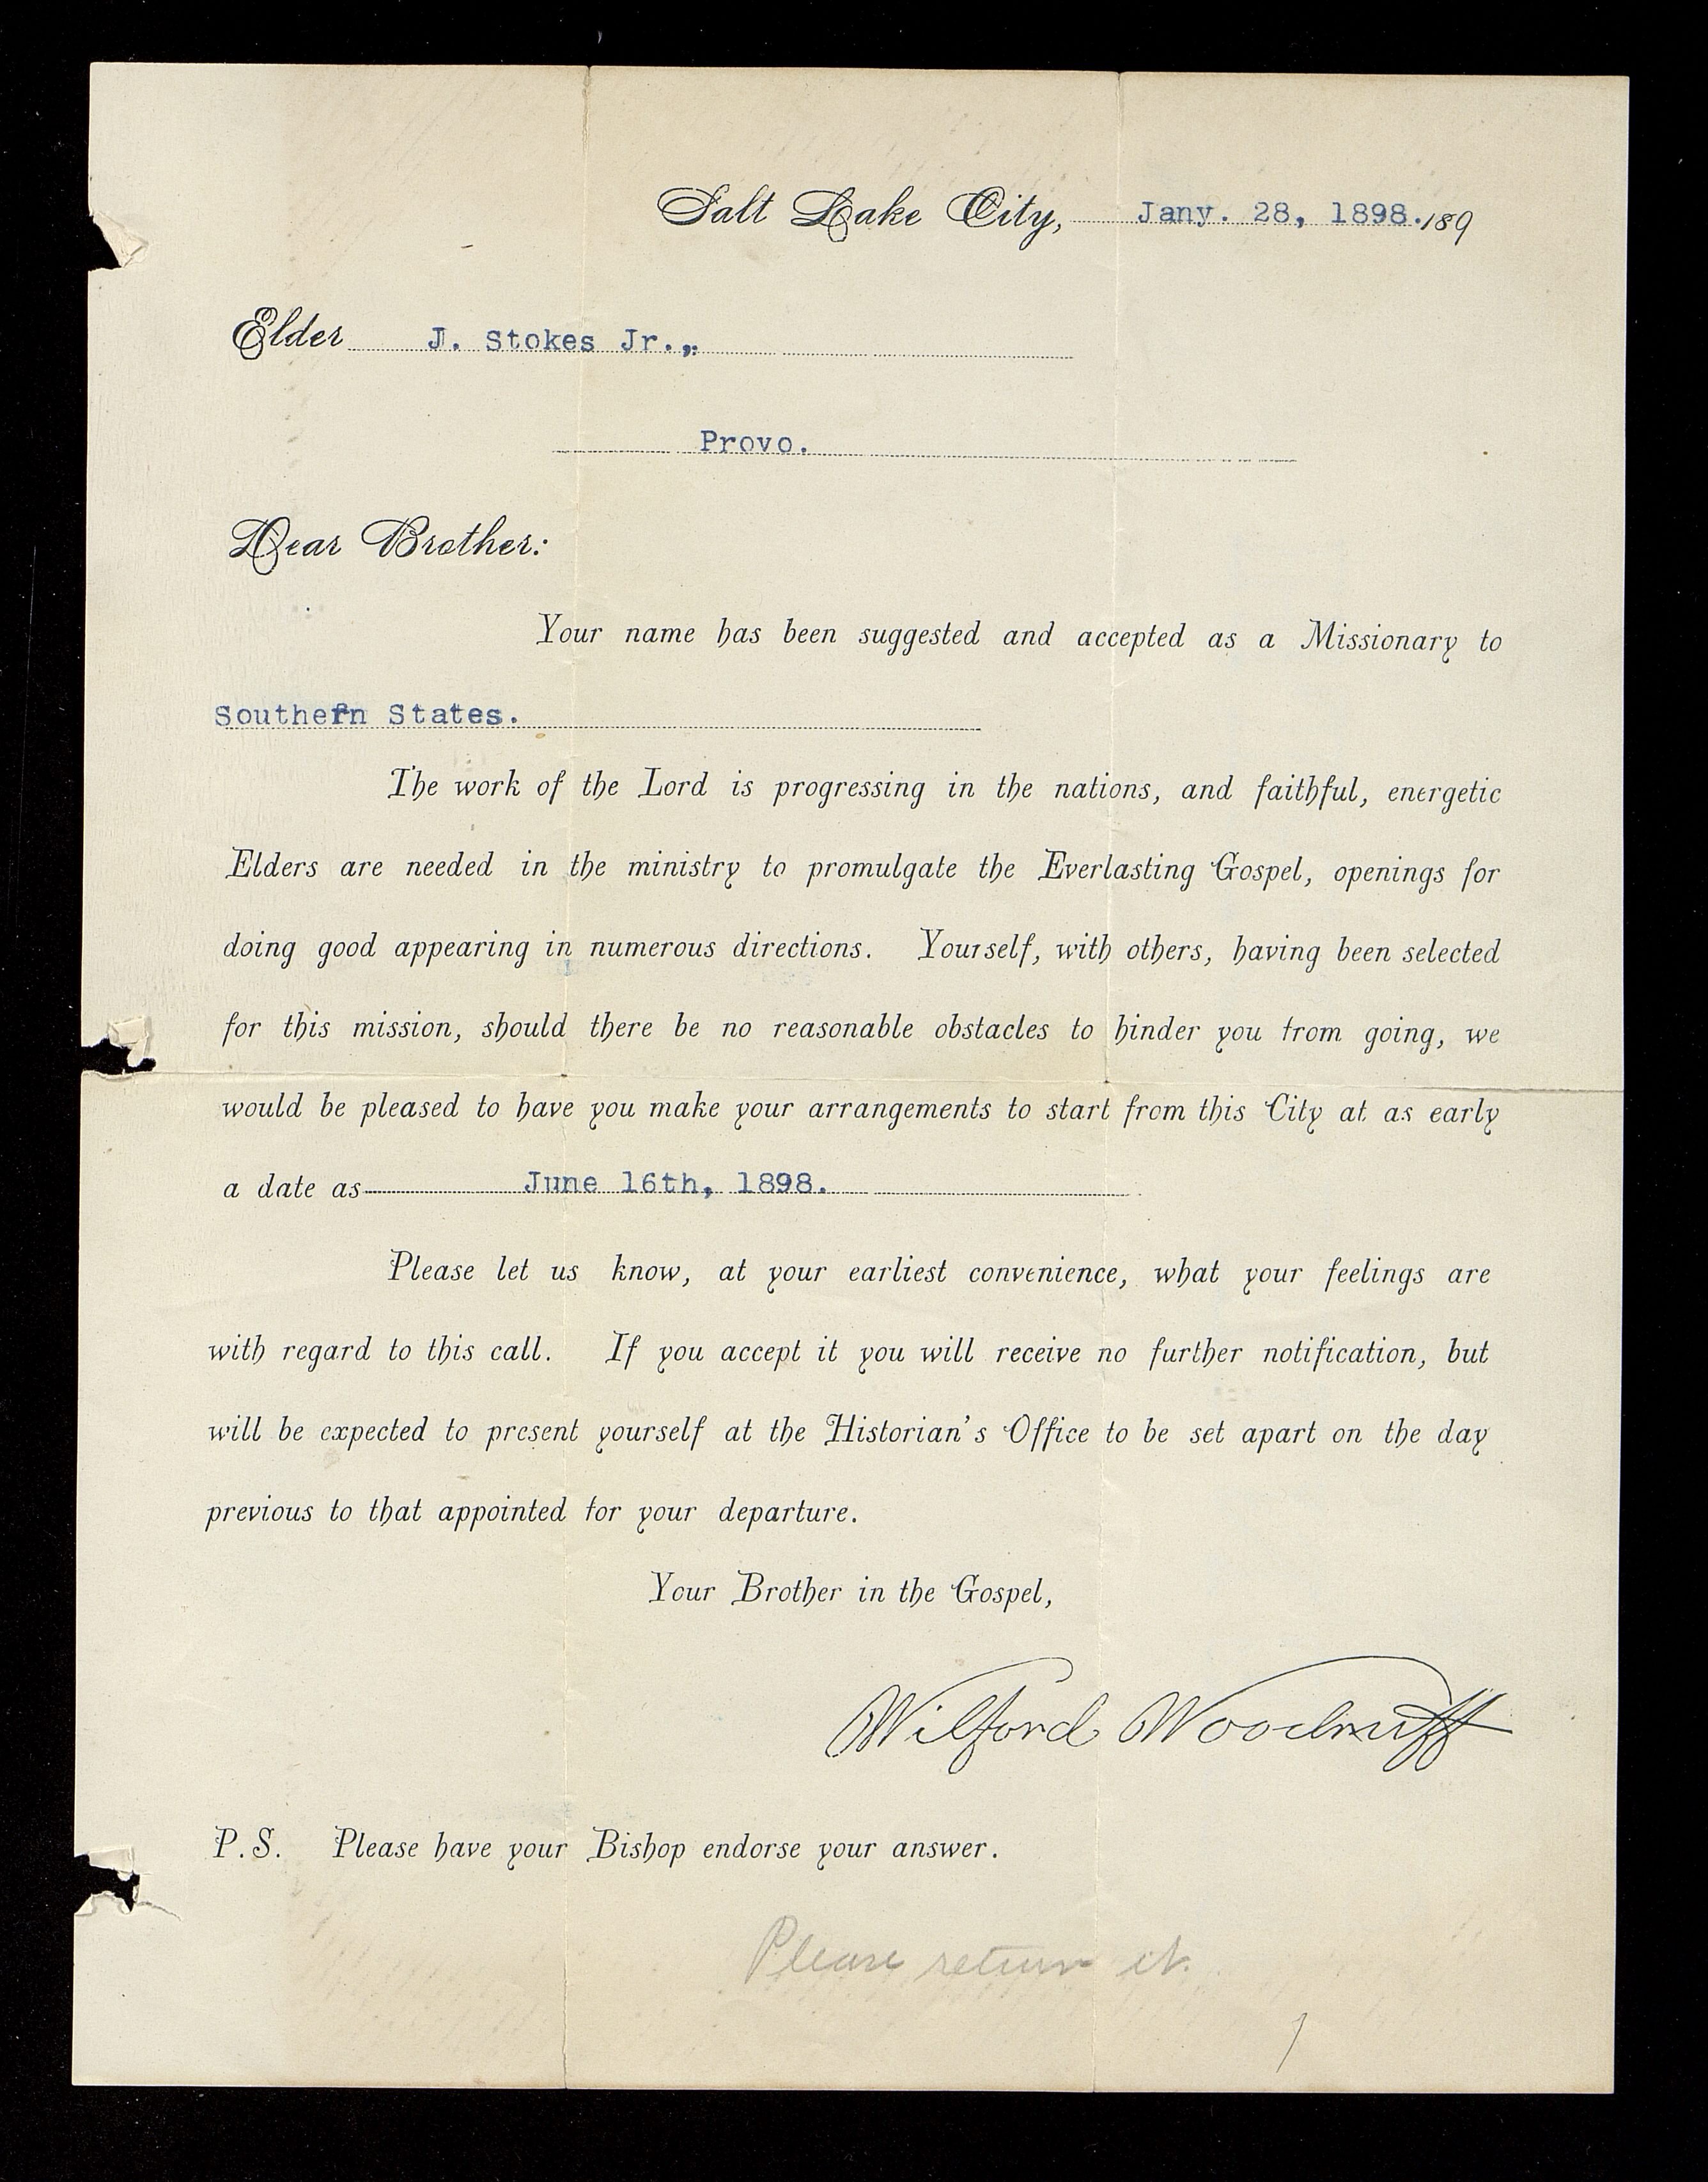 Salt Lake City, Jany. 28, 1898. 189
Elder J. Stokes Jr.,
Provo.
Dear Brother:
Your name has been suggested and accepted as a Missionary to
Southern States.
The work of the Lord is progressing in the nations, and faithful, energetic
Elders are needed in the ministry to promulgate the Everlasting Gospel, openings for
doing good appearing in numerous directions. Yourself, with others, having been selected
for this mission, should there be no reasonable obstacles to hinder you from going, we
would be pleased to have you make your arrangements to start from this City at as early
a date as June 16th, 1898.
Please let us know, at your earliest convenience, what your feelings are
with regard to this call. If you accept it you will receive no further notification, but
will be expected to present yourself at the Historian's Office to be set apart on the day
previous to that appointed for your departure.
Your Brother in the Gospel,
Wilford Woodruff
P.S. Please have your Bishop endorse your answer.
Please return it.